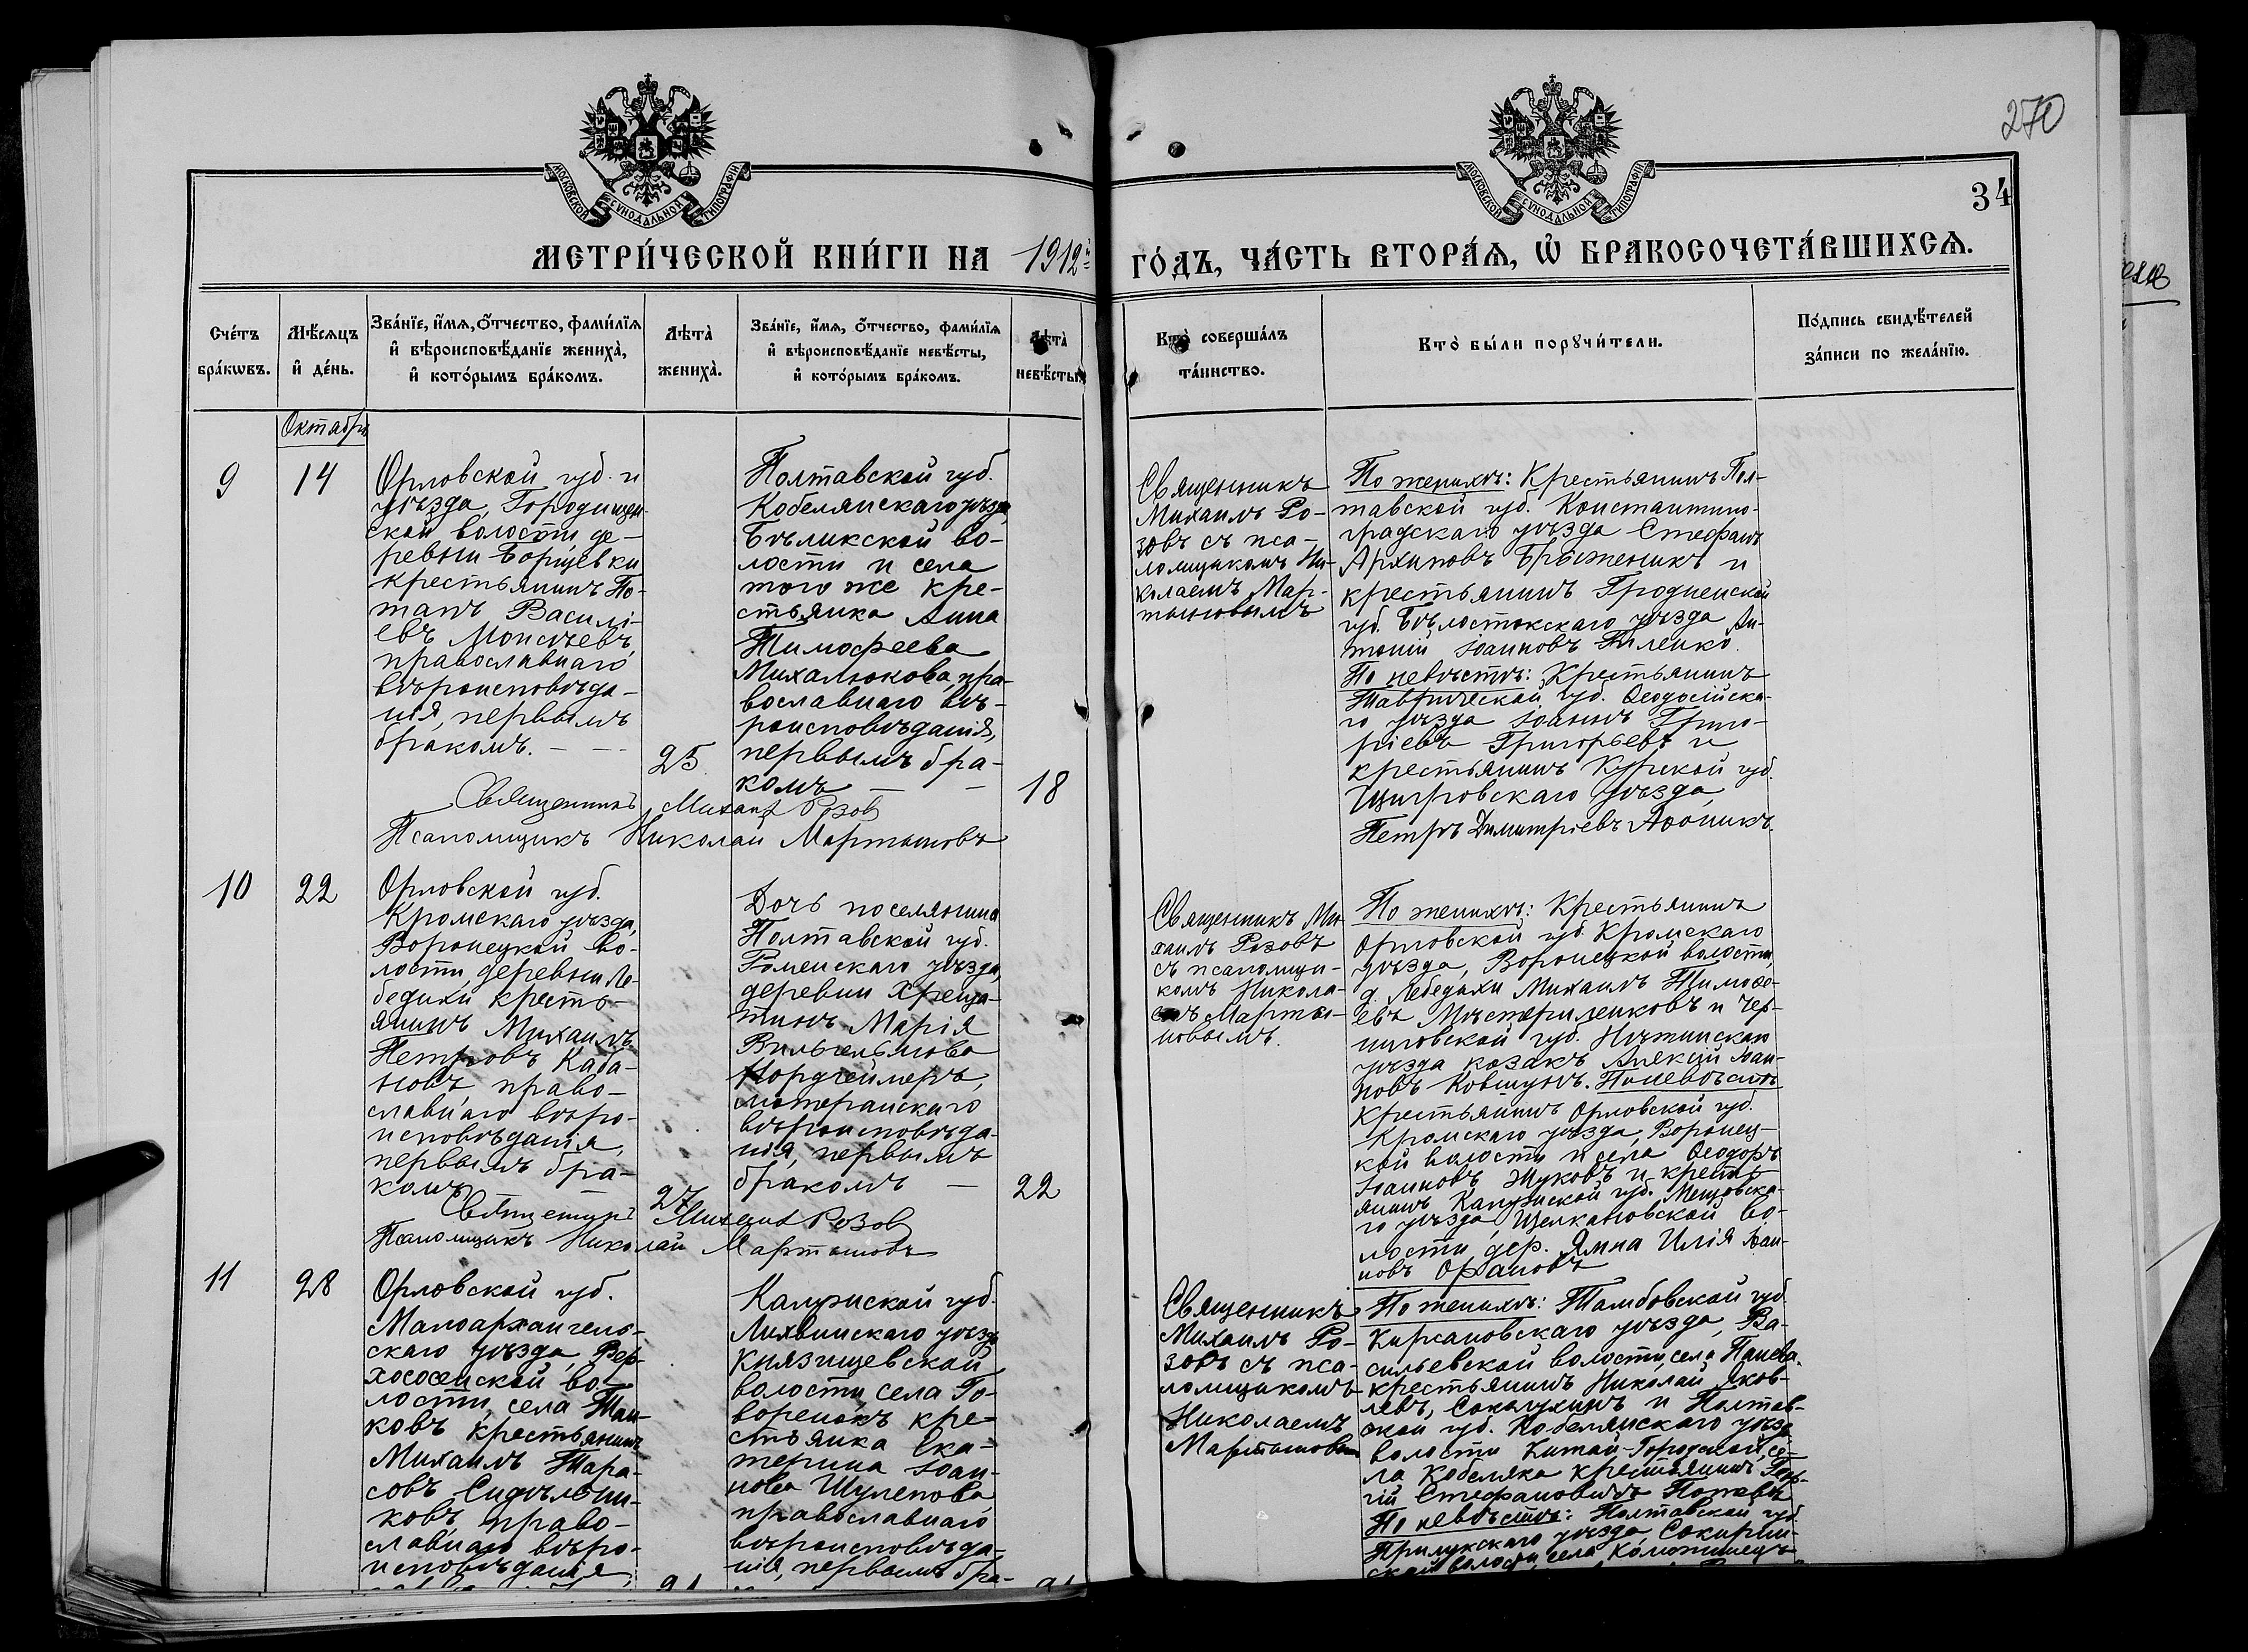 270
34
МОСКОВСКОЙ СѴНОДАЛЬНОЙ ТИПОГРАФІИ
МОСКОВСКОЙ СѴНОДАЛЬНОЙ ТИПОГРАФІИ
МЕТРИ́ЧЕСКОЙ КНИ́ГИ НА 1912й
ГО́ДЪ, ЧА́СТЬ ВТОРА́Ѧ, Ѽ БРАКОСОЧЕТА́ВШИХСѦ.
Сче́тъ
бра́кѡвъ.
Мѣ́сѧцъ
и҆ де́нь.
Зва́нїе, и҆́мѧ, ѻ҆́тчество, фами́лїѧ
и҆ вѣроисповѣ́данїе жениха̀,
и҆ кото́рымъ бра́комъ.
Лѣта̀
жениха̀.
Зва́нїе, и҆́мѧ, ѻ҆́тчество, фами́лїѧ
и҆ вѣроисповѣ́данїе невѣ́сты,
и҆ кото́рымъ бра́комъ.
Лѣта̀
невѣ́сты.
Кто̀ соверша́лъ
та́инство.
Кто̀ бы́ли порꙋчи́тели.
По́дпись свидѣ́телей
за́писи по жела́нїю.
Октябрь
9
14
Орловской губ. и
уѣзда, Городищен-
ской волости де-
ревни Борщевки
крестьянинъ По-
тапъ Василі-
евъ Моисѣевъ,
православнаго
вѣроисповѣда-
нія, первымъ
бракомъ. — — —
25
Полтавской губ.
Кобелянскаго уѣзда,
Бѣликской во-
лости и села
того же кре-
стьянка Анна
Тимофеева
Михалюкова, пра-
вославнаго вѣ-
роисповѣданія,
первымъ бра-
комъ — —
18
Священникъ Михаил Розов
Псаломщикъ Николай Мартыновъ
Священникъ
Михаилъ Ро-
зовъ съ пса-
ломщикомъ Ни-
колаемъ Мар-
тыновымъ
По женихѣ: Крестьянинъ Пол-
тавской губ. Константино-
градскаго уѣзда Стефанъ
Архиповъ и
крестьянинъ Гродненской
губ. Бѣлостокскаго уѣзда Ан-
тоній Іоанновъ Пиленко.
По невѣстѣ: Крестьянинъ
Таврической губ. Ѳеодосійска-
го уѣзда Іоаннъ Григо-
ріевъ Григорьевъ и
крестьянинъ Курской губ.
Щигровскаго уѣзда,
Петръ Димитріевъ Аѳоникъ.
10
22
Орловской губ.
Кромскаго уѣзда,
Воронецкой во-
лости, деревни Ле-
бедихи кресть-
янинъ Михаилъ
Петровъ Каба-
новъ право-
славнаго вѣро-
исповѣданія,
первымъ бра-
комъ
27
Дочь поселянина
Полтавской губ.
Роменскаго уѣзда,
деревни Хреща-
тикъ Марія
Вильгельмова
Нордгеймеръ,
лютеранскаго
вѣроисповѣда-
нія, первымъ
бракомъ —
22
Священникъ Михаил Розов
Псаломщикъ Николай Мартыновъ
Священникъ Ми-
хаилъ Розовъ
съ псаломщи-
комъ Никола-
емъ Марты-
новымъ.
По женихѣ: Крестьянинъ
Орловской губ. Кромскаго
уѣзда, Воронецкой волости,
д. Лебедихи Михаилъ Тимоѳе-
евъ и Чер-
ниговской губ. Нѣжинскаго
уѣзда козакъ Алексій Іоан-
новъ Ковтунъ. По невѣстѣ
Крестьянинъ Орловской губ.
Кромскаго уѣзда, Воронец-
кой волости и села Ѳеодоръ
Іоанновъ Жуковъ и кресть-
янинъ Калужской губ. Мещовска-
го уѣзда, Щелкановской во-
лости, дер. Ямна Илія Іоан-
новъ
11
28
Орловской губ.
Малоархангель-
скаго уѣзда, Вер-
хососенской во-
лости, села Тап-
ковъ крестьянинъ
Михаилъ Тара-
совъ Сидѣльни-
ковъ, право-
славнаго вѣро-
исповѣданія,
Калужской губ.
Лихвинскаго уѣзда
Князищевской
волости, села Го-
воренокъ кре-
стьянка Ека-
терина Іоан-
нова Шулепова,
православнаго
вѣроисповѣда-
нія, первымъ бра-
Священникъ
Михаилъ Ро-
зовъ съ пса-
ломщикомъ
Николаемъ
Мартыновым
По женихѣ: Тамбовской губ.
Кирсановскаго уѣзда, Ва-
сильевской волости, села
крестьянинъ Николай Яков-
левъ, и Полтав-
ской губ. Кобелянскаго уѣзда
волости Китай-Городской, се-
ла Кобеляка крестьянинъ Геор-
гій Стефановичъ
По невѣстѣ: Полтавской губ.
Прилукскаго уѣзда, Сокирин-
ской волости, села